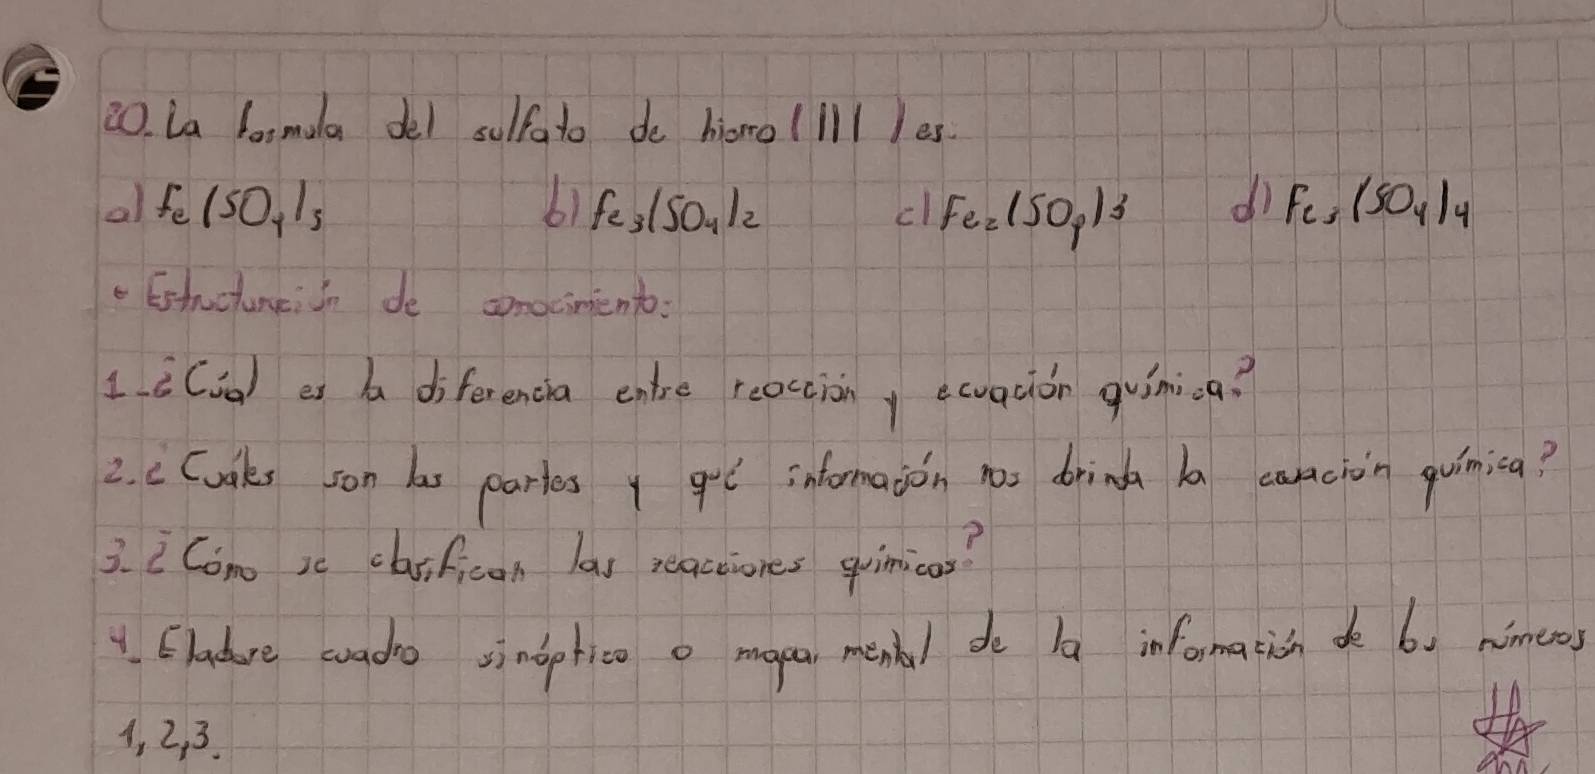 20. La formula del sulfato de hierro (III) es:
a) Fe(SO4)3 b) Fe3(SO4)2 c) Fe2(SO4)3 d) Fe3(SO4)4
• Estructuración de conocimiento:
1-¿Cúal es la diferencia entre reacción y ecuación química?
2.¿Cuáles son las partes y qué información nos brinda la ecuación química?
3-¿Cómo se clasifican las reacciones químicas?
4. Elabore cuadro sinóptico o mapa mental de la información de los números
1, 2, 3.